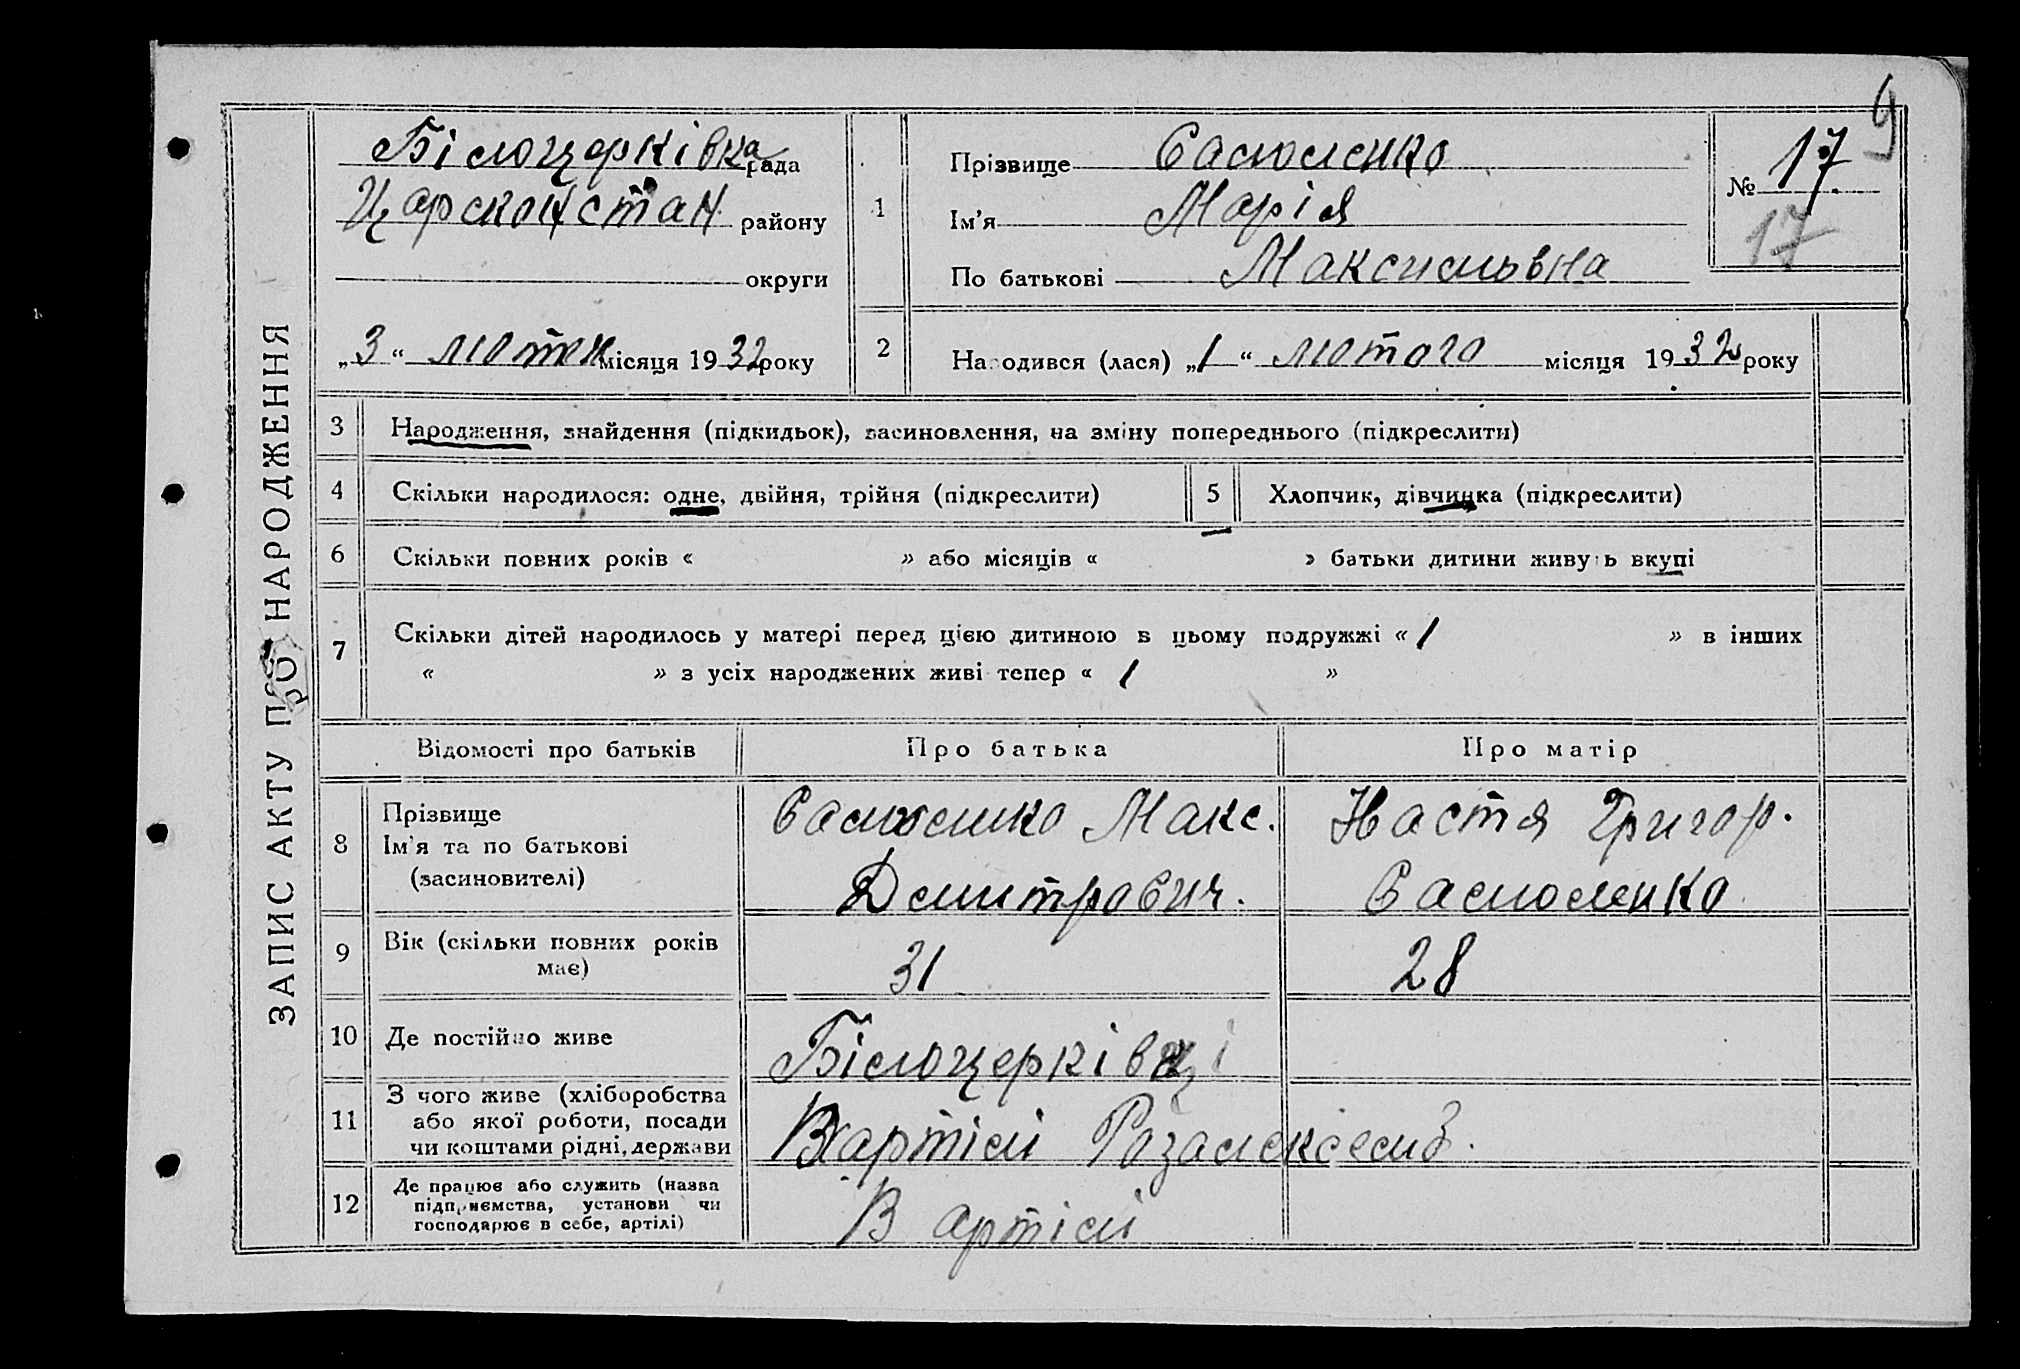 ЗАПИС АКТУ ПРО НАРОДЖЕННЯ
9
Білоцерківка рада
Царскойстан району
округи
„3“ лютен місяця 1932 року
1
Прізвище Самоленко
Ім'я Марія
По батькові Максимовна
№ 17
17
2
Народився (лася) „1“ лютого місяця 1932 року
3 Народження, знайдення (підкидьок), васиновлення, на зміну попереднього (підкреслити)
4 Скільки народилося: одне, двійня, трійня (підкреслити)
5 Хлопчик, дівчинка (підкреслити)
6 Скільки повних років « » або місяців « » батьки дитини живуть вкупі
7 Скільки дітей народилось у матері перед цією дитиною в цьому подружжі « 1 » в інших
« » з усіх народжених живі тепер « 1 »
Відомості про батьків
Про батька
Про матір
8 Прізвище
Ім'я та по батькові
(засиновителі)
Самоленко Макс.
Дмитрович.
Настя Григор.
Самоленко
9 Вік (скільки повних років
має)
31
28
10 Де постійно живе
Білоцерківці
11 З чого живе (хліборобства
або якої роботи, посади
чи коштами рідні, держави
В артілі
12 Де працює або служить (назва
підприємства, установи чи
господарює в себе, артілі)
В артілі